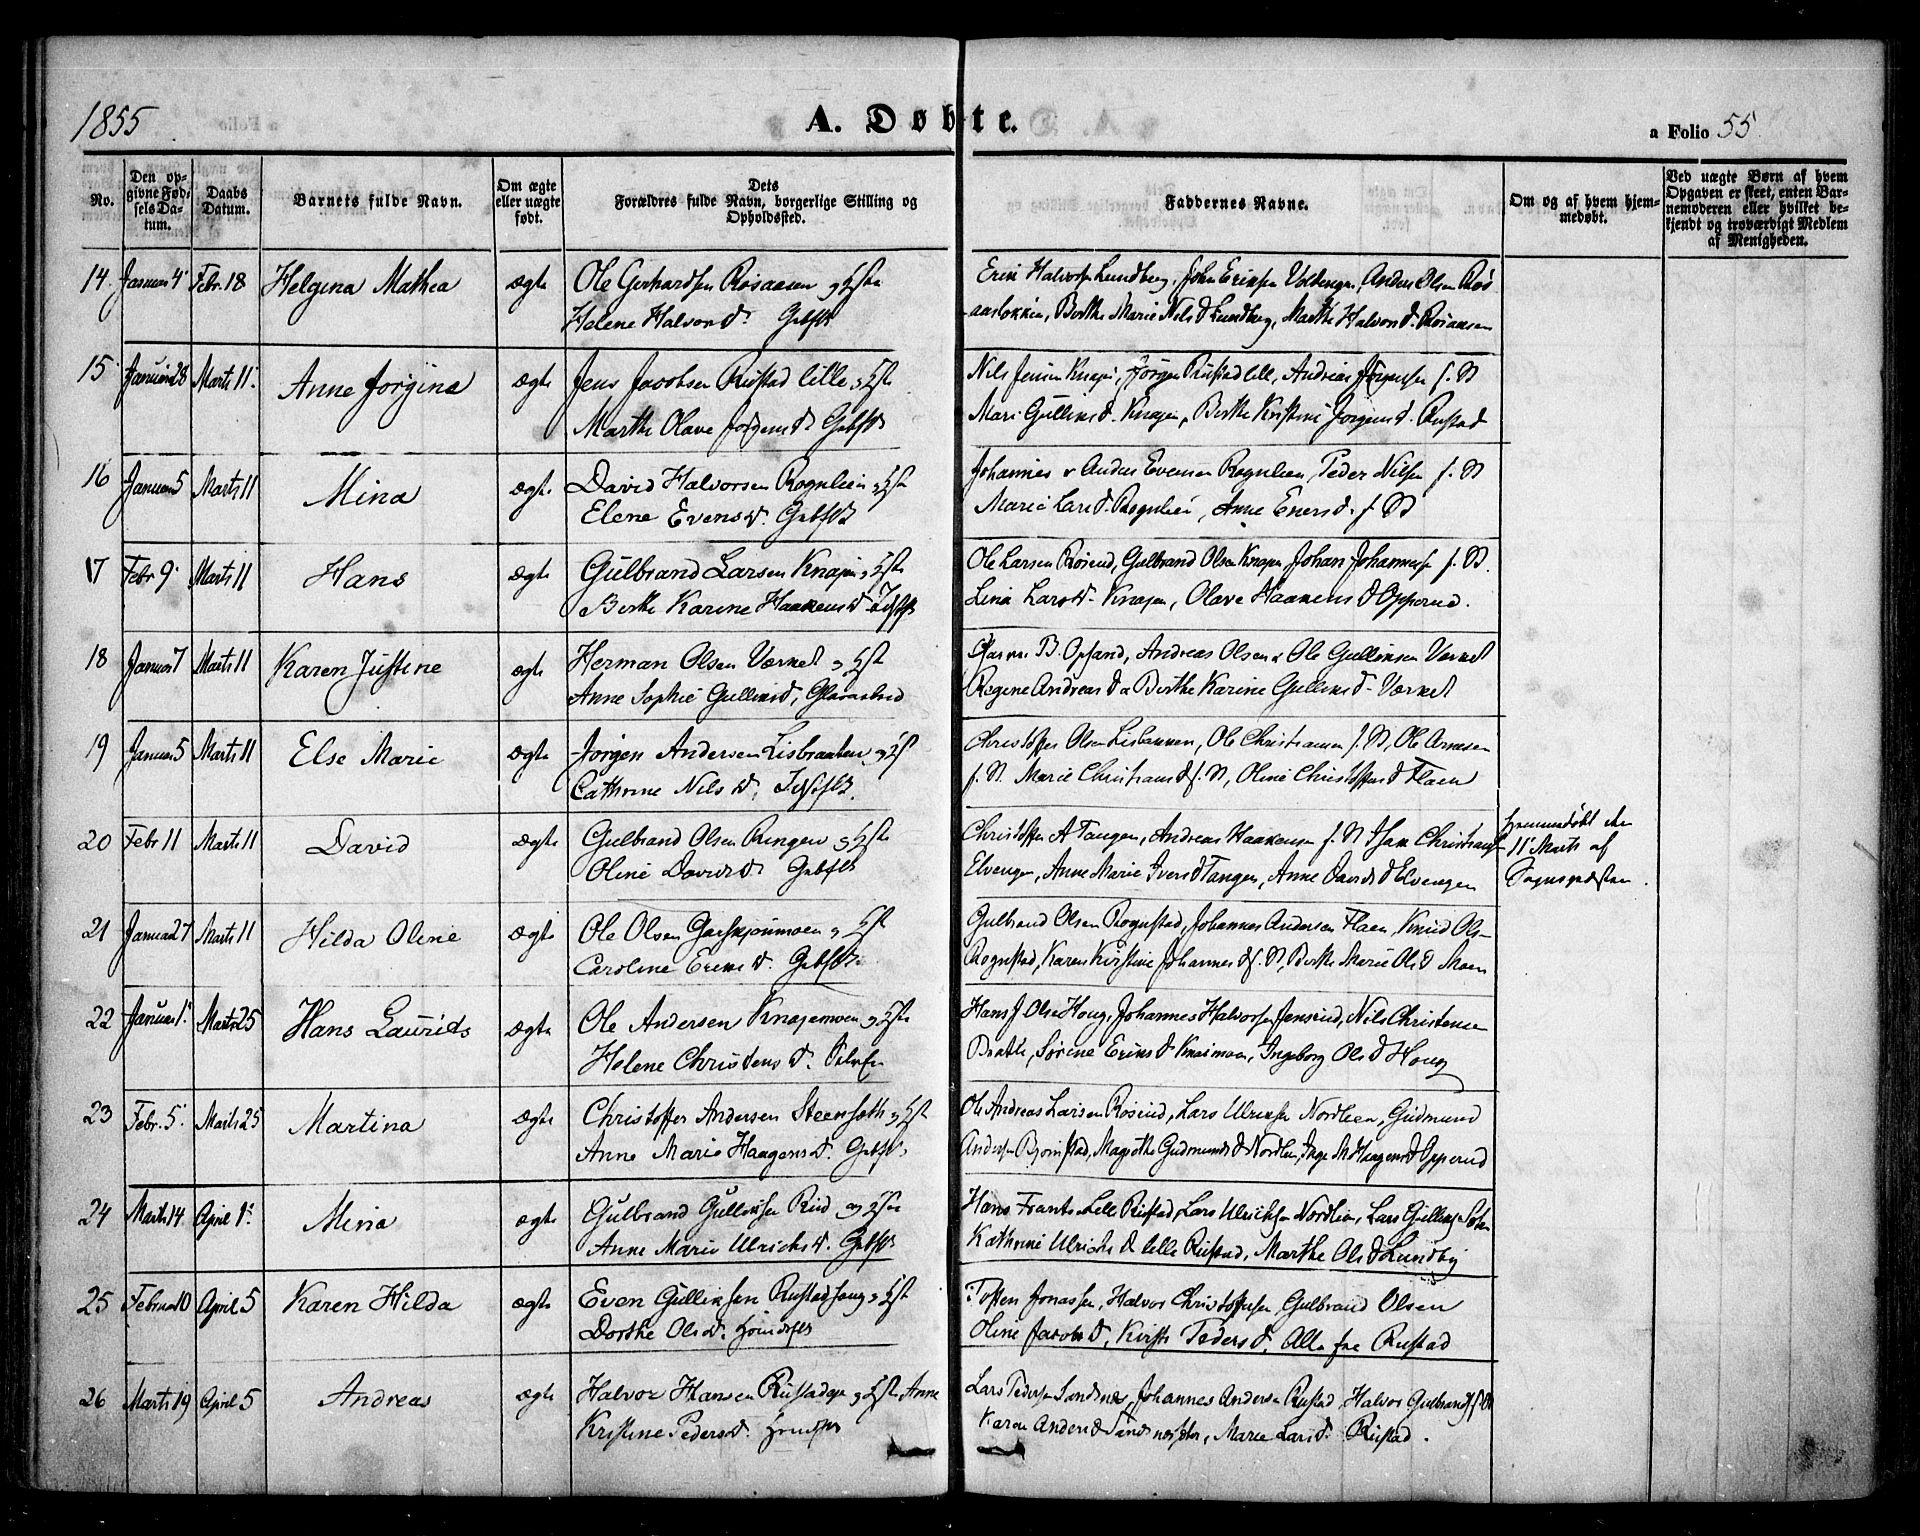 1855
A. Døbte.
a Folio 55.
No.
Den op-
givne Fød-
sels Da-
tum.
Daabs
Datum.
Barnets fulde Navn.
Om ægte
eller uægte
født.
Dets
Forældres fulde Navn, borgerlige Stilling og
Opholdssted.
Faddernes Navne.
Om og af hvem hjem-
medøbt.
Ved uægte Børn af hvem
Opgaven er skeet, enten Bar-
nemoderen eller hvilket be-
kjendt og troværdigt Medlem
af Menigheden.
14 Januar 4 Febr. 18 Helgina Mathea ægte Ole Gerhardsen Rosaasen og Hst
Helene Halvors D.
Erik Halvorsen Lundberg, John Eriksen Anders Olsen Ros
aasløkken, Berthe Marie Nils D Lundberg, Marthe Halvors D. Rosaasen
15 Januar 28 Marts 11 Anne Jorgina ægte Jens Jacobsen Rustad lille og Hst
Marthe Olave D
Nils Jensen Knapen, Jørgen Rustad lille, Andreas Jørgensen f. St
Mari Gullens D. Knapen, Berthe Kristine Jorgens D. Rustad
16 Januar 5 Marts 11 Mina ægte David Halvorsen Rognlien og Hst
Elene Evens D.
Johannes & Anders Evensen Rognlien, Peder Nilsen f. St
Marie Lars D. Rognlien, Anne Eners D. f. St
17 Febr 9 Marts 11 Hans ægte Gulbrand Larsen Knapen og Hst
Berthe Karine Haakens D
Ole Larsen Rosrud, Gulbrand Olsen Knapen, Johan Johannesen f. St.
Lina Lars D. Knapen, Olave Haakens D Opperud.
18 Januar 7 Marts 11 Karen Justine ægte Herman Olsen Værket og Hst
Anne Sophie Gulliks D,
B. Opsand, Andreas Olsen & Ole Gulliksen Værket
Regine Andreas D & Berthe Karine Gulliks D. Værket
19 Januar 5 Marts 11 Else Marie ægte Jorgen Andersen Lisbraaten og Hst
Cathrine Nils D.
Christoffer Olsen Ole Christiansen f. St, Ole Arnesen
f. St. Marie Christians D f. St, Oline Christoffers D Flaen
20 Febr 11 Marts 11 David ægte Gulbrand Olsen Ringen og Hst
Oline Davids D
Christoffer A Tangen, Andreas Haakensen f. St Christians
Elvengen, Anne Marie Ivers D Tangen, Anne Davids D Elvengen
hjemmedøbt den
11 Marts af
Sognepresten.
21 Januar 27 Marts 11 Hilda Oline ægte Ole Olsen Garskjønmoen og Hst
Caroline Eriks D.
Gulbrand Olsen Rognstad, Johannes Andersen Flaen, Knud Ols-
Rognstad, Karen Kirstine Johannes D f. St, Berthe Marie Ols D Moen
22 Januar 1 Marts 25 Hans Laurids ægte Ole Andersen Knapemoen og Hst
Helene Christens D.
Hans J Olsen Houg, Johannes Halvorsen Jensrud, Nils Christensen
Braathe, Sørene Eriks D Ingeborg Ols D Houg
23 Febr. 5 Marts 25 Martina ægte Christoffer Andersen Steensæth og Hst
Anne Marie Haagens D.
Ole Andreas Larsen Rosrud, Lars Ulriksen Nordlien, Gudmund
Andersen Bjørnstad, Magrethe Gudmunds D Nordlien, Inge M Haagens D Opperud
24 Marts 14 April 1 Mina ægte Gulbrand Gulliksen Rud og Hst
Anne Marie Ulrichs D.
Hans Frants Lille Rustad, Lars Ulrichsen Nordlien, Lars
Kathrine Ulrichs D lille Rustad, Marthe Ols D Lundby
25 Februar 10 April 5 Karen Hilda ægte Even Gulliksen Rustadhoug og Hst
Dorthe Ols D.
Tosten Jonassen, Halvor Christoffersen, Gulbrand Olsen
Oline Jacobs D, Kirsti Peders D. Alle fra Rustad
26 Marts 19 April 5 Andreas ægte Halvor Hansen og Hst Anne
Kristine Peders D.
Lars Pedersen Sandnes, Johannes Andersen Rustad, Halvor Gulbrands f. St
Karen Anders D Marie Lars D. Rustad.